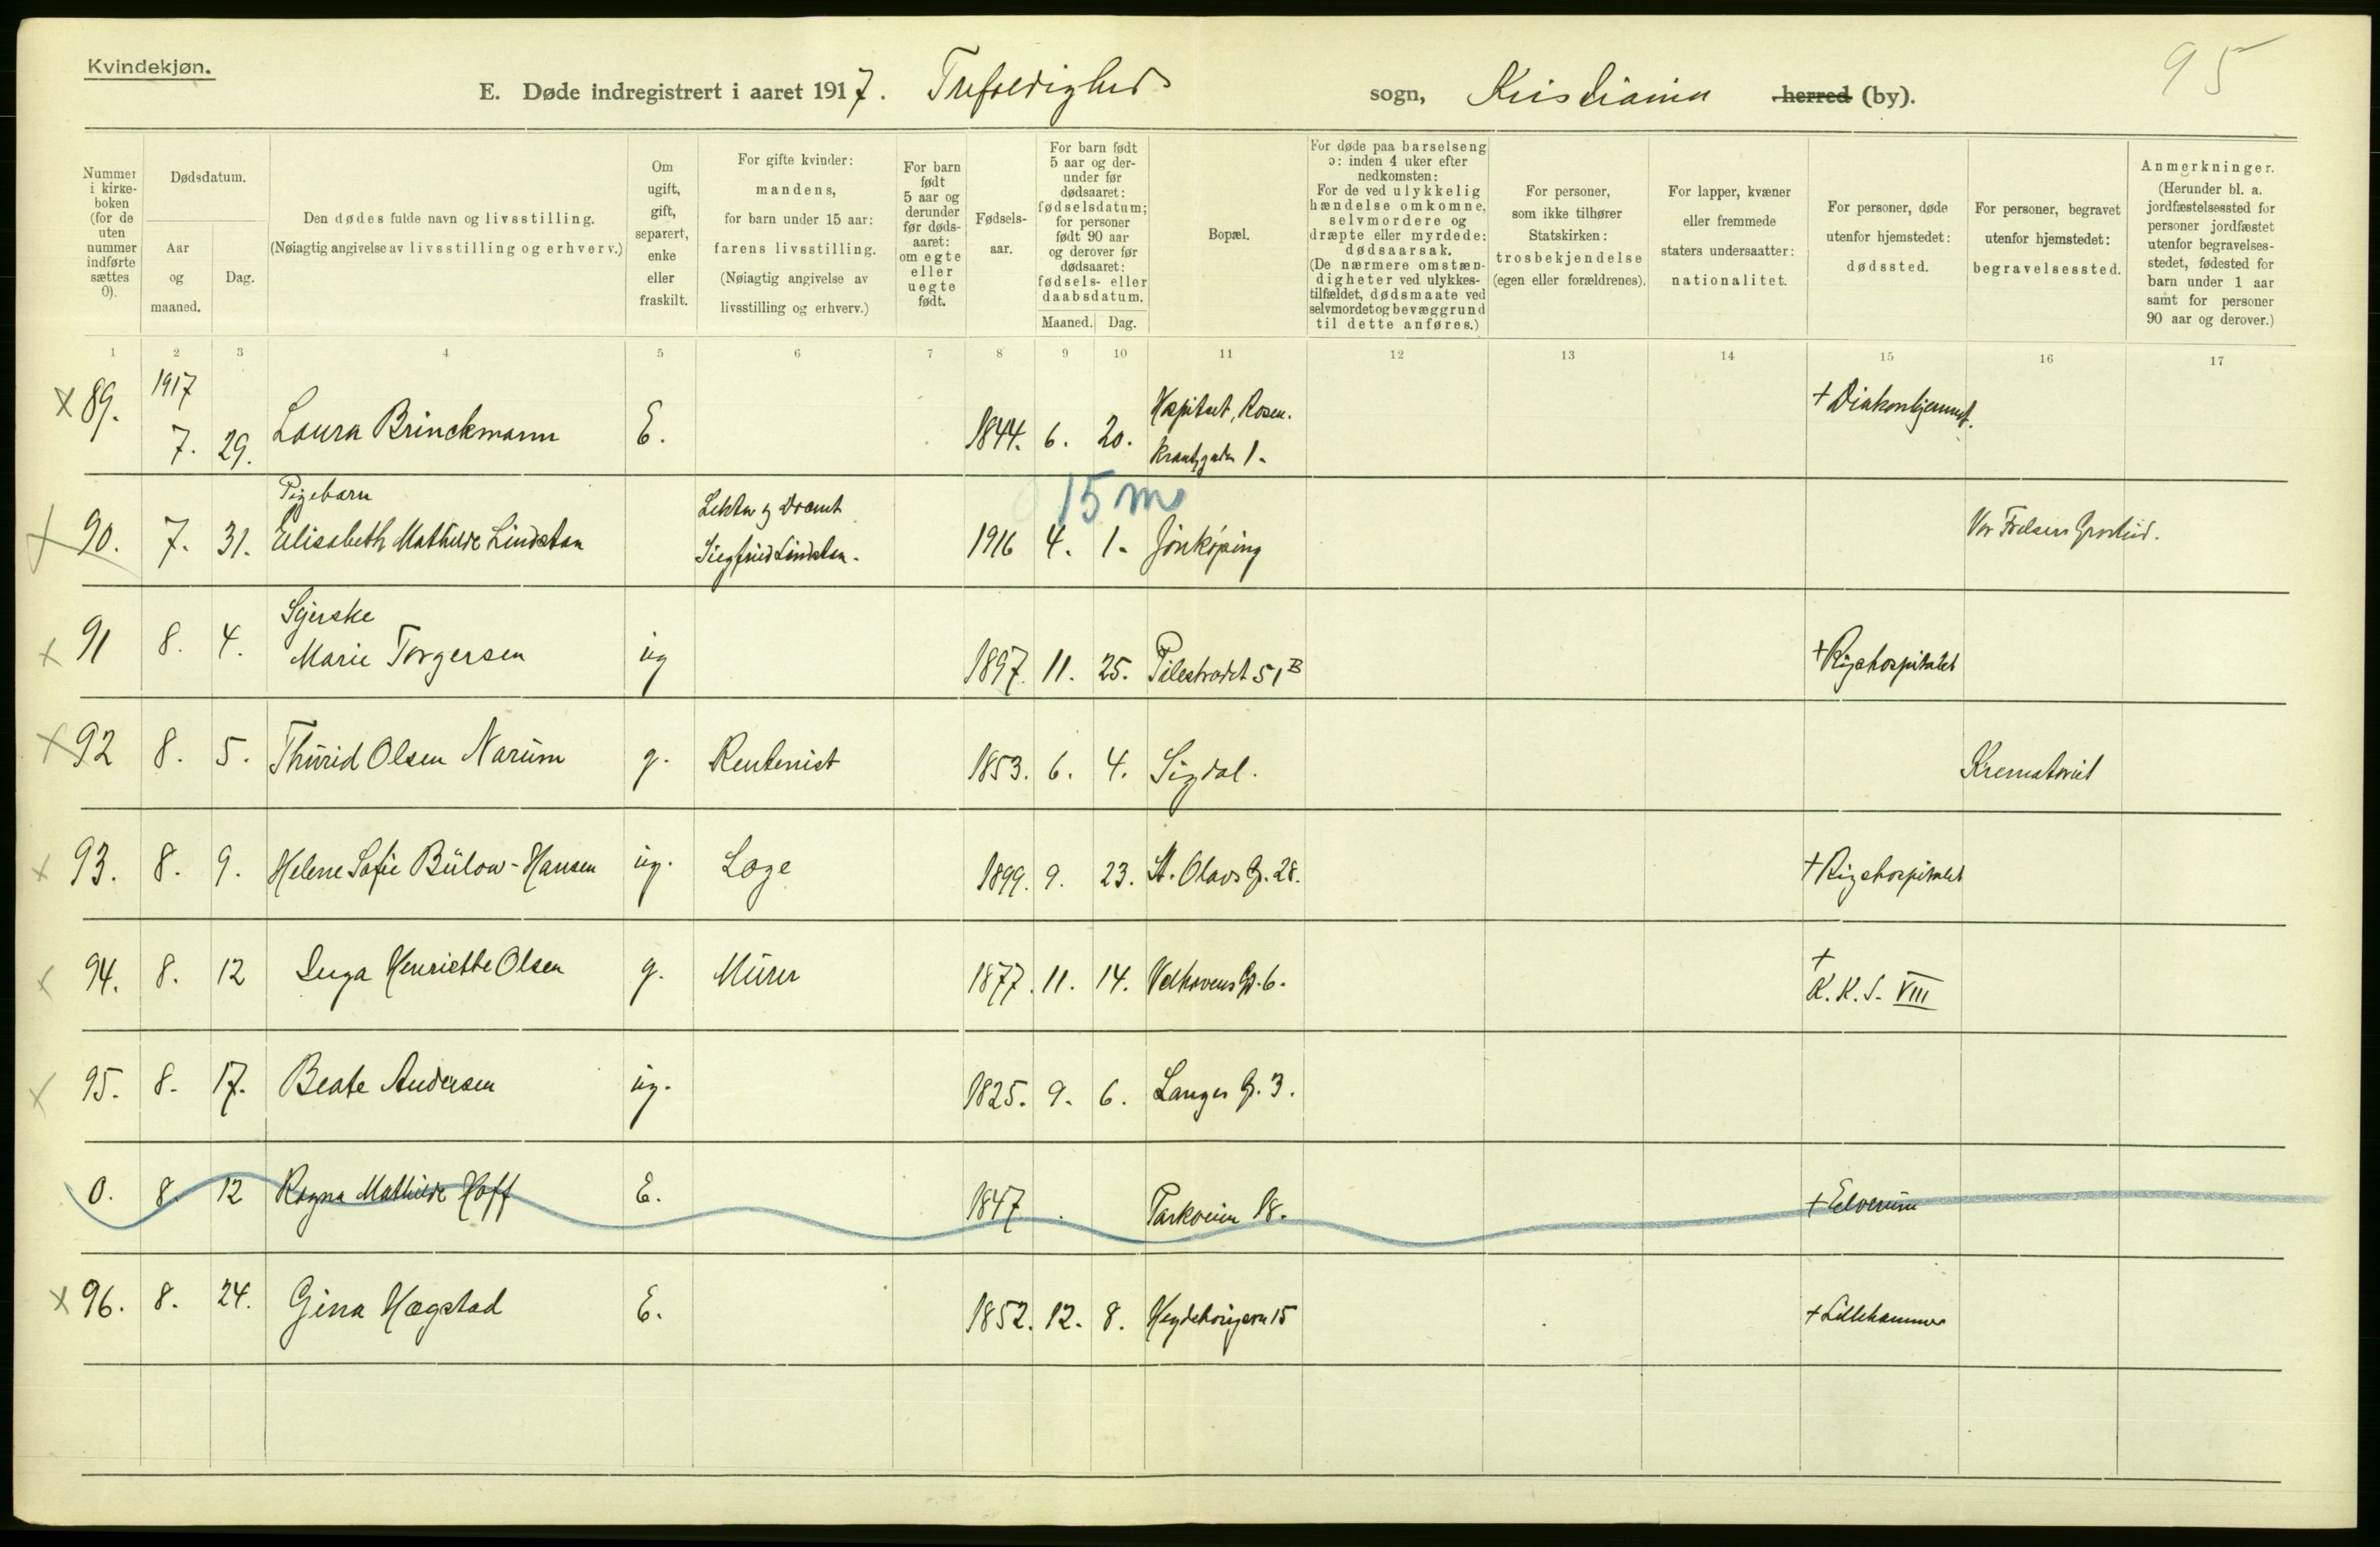 Kvindekjøn.
95
E. Døde indregistrert i aaret 1917. Trefoldigheds sogn, Kristiania herred (by).
Nummer i kirkeboken (for de uten nummer indførte sættes 0).
Dødsdatum.
Aar og maaned.
Dag.
Den dødes fulde navn og livsstilling.
(Nøiagtig angivelse av livsstilling og erhverv.)
Om ugift, gift, separert, enke eller fraskilt.
For gifte kvinder: mandens, for barn under 15 aar: farens livsstilling.
(Nøiagtig angivelse av livsstilling og erhverv.)
For barn født 5 aar og derunder før dødsaaret: om egte eller uegte født.
Fødselsaar.
For barn født 5 aar og derunder før dødsaaret: fødselsdatum; for personer født 90 aar og derover før dødsaaret: fødsels- eller daabsdatum.
Maaned. Dag.
Bopæl.
For døde paa barselseng ɔ: inden 4 uker efter nedkomsten: For de ved ulykkelig hændelse omkomne, selvmordere og dræpte eller myrdede: dødsaarsak.
(De nærmere omstændigheter ved ulykkestilfældet, dødsmaate ved selvmordet og bevæggrund til dette anføres.)
For personer, som ikke tilhører Statskirken: trosbekjendelse (egen eller forældrenes).
For lapper, kvæner eller fremmede staters undersaatter: nationalitet.
For personer, døde utenfor hjemstedet: dødssted.
For personer, begravet utenfor hjemstedet: begravelsessted.
Anmerkninger.
(Herunder bl. a. jordfæstelsessted for personer jordfæstet utenfor begravelsesstedet, fødested for barn under 1 aar samt for personer 90 aar og derover.)
1 2 3 4 5 6 7 8 9 10 11 12 13 14 15 16 17
1917
x 89. 7. 29. Laura Brinckmann E. 1844. 6. 20. Hospitset, Rosenkrantzgaden 1. + Diakonhjemmet.
15 m
Pigebarn
x 90. 7. 31. Elisabeth Mathilde Lindstan Lektor og Docent Siegfried Lindstan. 1916 4. 1. Jönköping Vor Frelsers Gravlund.
Syerske
x 91 8. 4. Marie Torgersen ug 1897. 11. 25. Pilestrædet 51 B + Rigshospitalet
x 92 8. 5. Thurid Olsen Narum g. Rentenist 1853. 6. 4. Sigdal. Krematoriet
x 93. 8. 9. Helene Sofie Bülow-Hansen ug. Læge 1899. 9. 23. St. Olavs G. 28. + Rigshospitalet
x 94. 8. 12 Inga Henriette Olsen g. Murer 1877. 11. 14. Welhavens G. 6. + K. K. S. VIII
x 95. 8. 17. Beate Andersen ug. 1825. 9. 6. Langes G. 3.
0. 8. 12 Ragna Mathilde Hoff E. 1847 Parkveien 18. + Elverum
x 96. 8. 24. Gina Hægstad E. 1852. 12. 8. Hegdehaugsvn 15 + Lillehammer